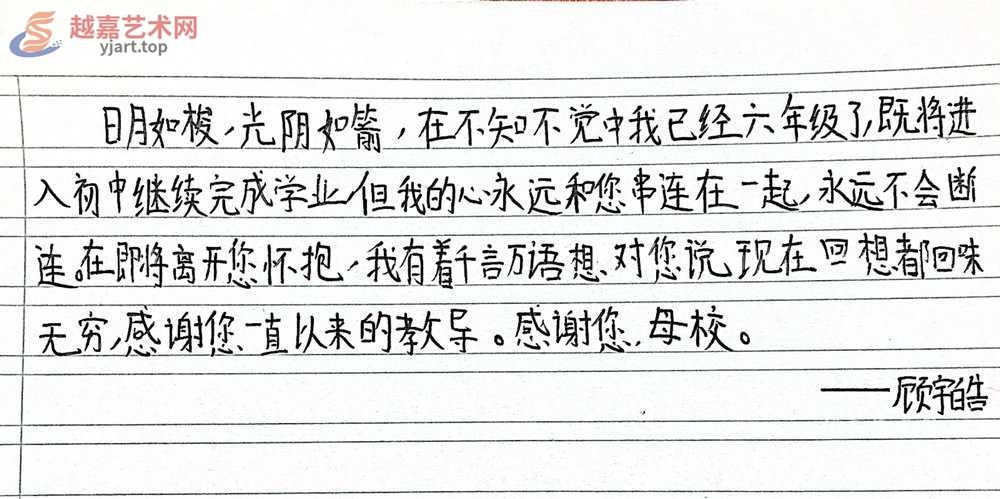 越嘉艺术网
yjart.top
日月如梭,光阴如箭,在不知不觉中我已经六年级了,既将进
入初中继续完成学业,但我的心永远和您串连在一起,永远不会断
连。在即将离开您怀抱,我有着千言万语想对您说,现在回想都回味
无穷,感谢您一直以来的教导。感谢您,母校。
——顾宇皓